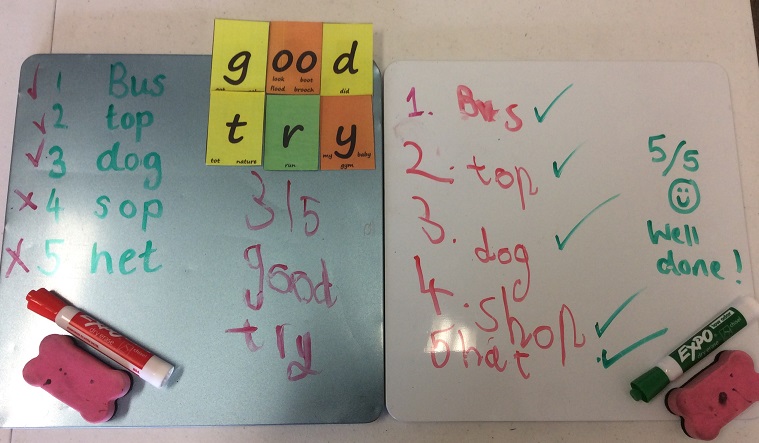 good
look boot
flood brooch
did
try
tot nature run my baby
gym
1 Bus
2 top
3 dog
4 sop
5 het
3/5
good
try
EXPO
1. Bus
2. top
3. dog
4. shop
5 hat
5/5
Well
done!
EXPO